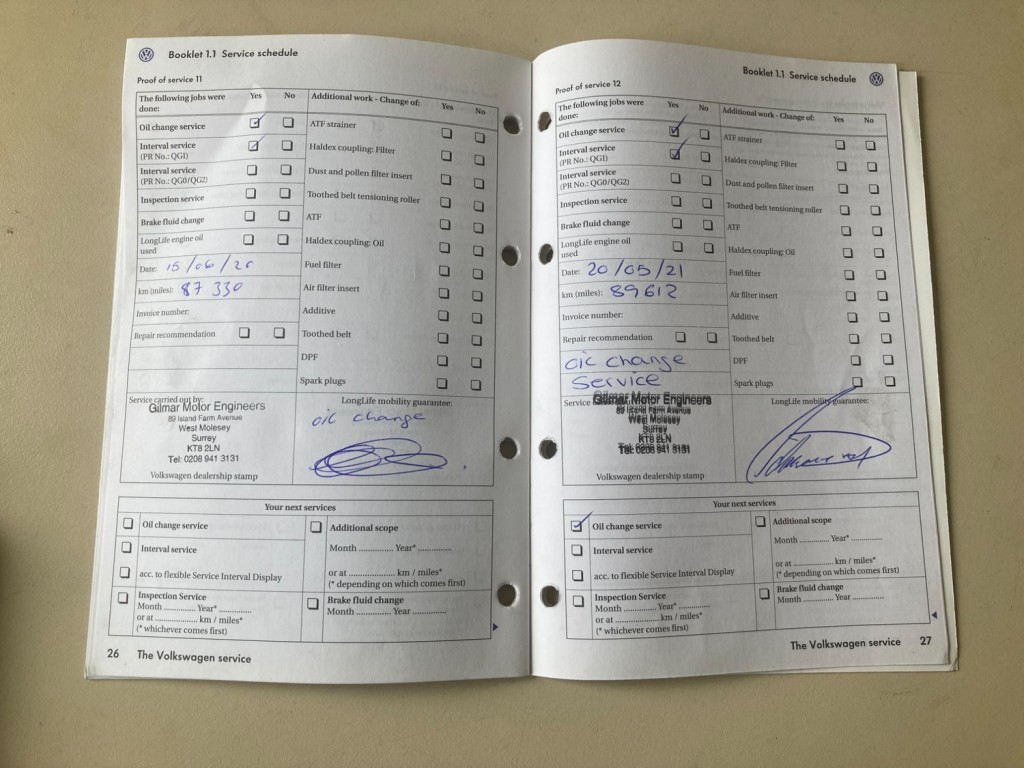 Booklet 1.1 Service schedule
Proof of service 11
The following jobs were done: Yes No
Oil change service
Interval service
(PR No.: QG1)
Interval service
(PR No.: QG0/QG2)
Inspection service
Brake fluid change
LongLife engine oil
used
Date: 15/06/20
km (miles): 87 330
Invoice number:
Repair recommendation
Additional work - Change of: Yes No
ATF strainer
Haldex coupling: Filter
Dust and pollen filter insert
Toothed belt tensioning roller
ATF
Haldex coupling: Oil
Fuel filter
Air filter insert
Additive
Toothed belt
DPF
Spark plugs
Service carried out by:
Gilmar Motor Engineers
89 Island Farm Avenue
West Molesey
Surrey
KT8 2LN
Tel: 0208 941 3131
Volkswagen dealership stamp
LongLife mobility guarantee:
oil change
Your next services
Oil change service
Interval service
acc. to flexible Service Interval Display
Inspection Service
Month ............ Year* ............
or at ................ km / miles*
(* whichever comes first)
Additional scope
Month ............ Year* ............
or at ................ km / miles*
(* depending on which comes first)
Brake fluid change
Month ............ Year ............
26 The Volkswagen service
Booklet 1.1 Service schedule
Proof of service 12
The following jobs were
done: Yes No
Oil change service
Interval service
(PR No.: QG1)
Interval service
(PR No.: QG0/QG2)
Inspection service
Brake fluid change
LongLife engine oil
used
Date: 20/05/21
km (miles): 89612
Invoice number:
Repair recommendation
oil change
Service
Additional work - Change of: Yes No
ATF strainer
Haldex coupling: Filter
Dust and pollen filter insert
Toothed belt tensioning roller
ATF
Haldex coupling: Oil
Fuel filter
Air filter insert
Additive
Toothed belt
DPF
Spark plugs
Service
Gilmar Motor Engineers
89 Island Farm Avenue
West Molesey
Surrey
KT8 2LN
Tel: 0208 941 3131
Volkswagen dealership stamp
LongLife mobility guarantee:
Your next services
Oil change service
Interval service
acc. to flexible Service Interval Display
Inspection Service
Month ............ Year* ............
or at ................ km / miles*
(* whichever comes first)
Additional scope
Month ............ Year* ............
or at ................ km / miles*
(* depending on which comes first)
Brake fluid change
Month ............ Year ............
The Volkswagen service 27